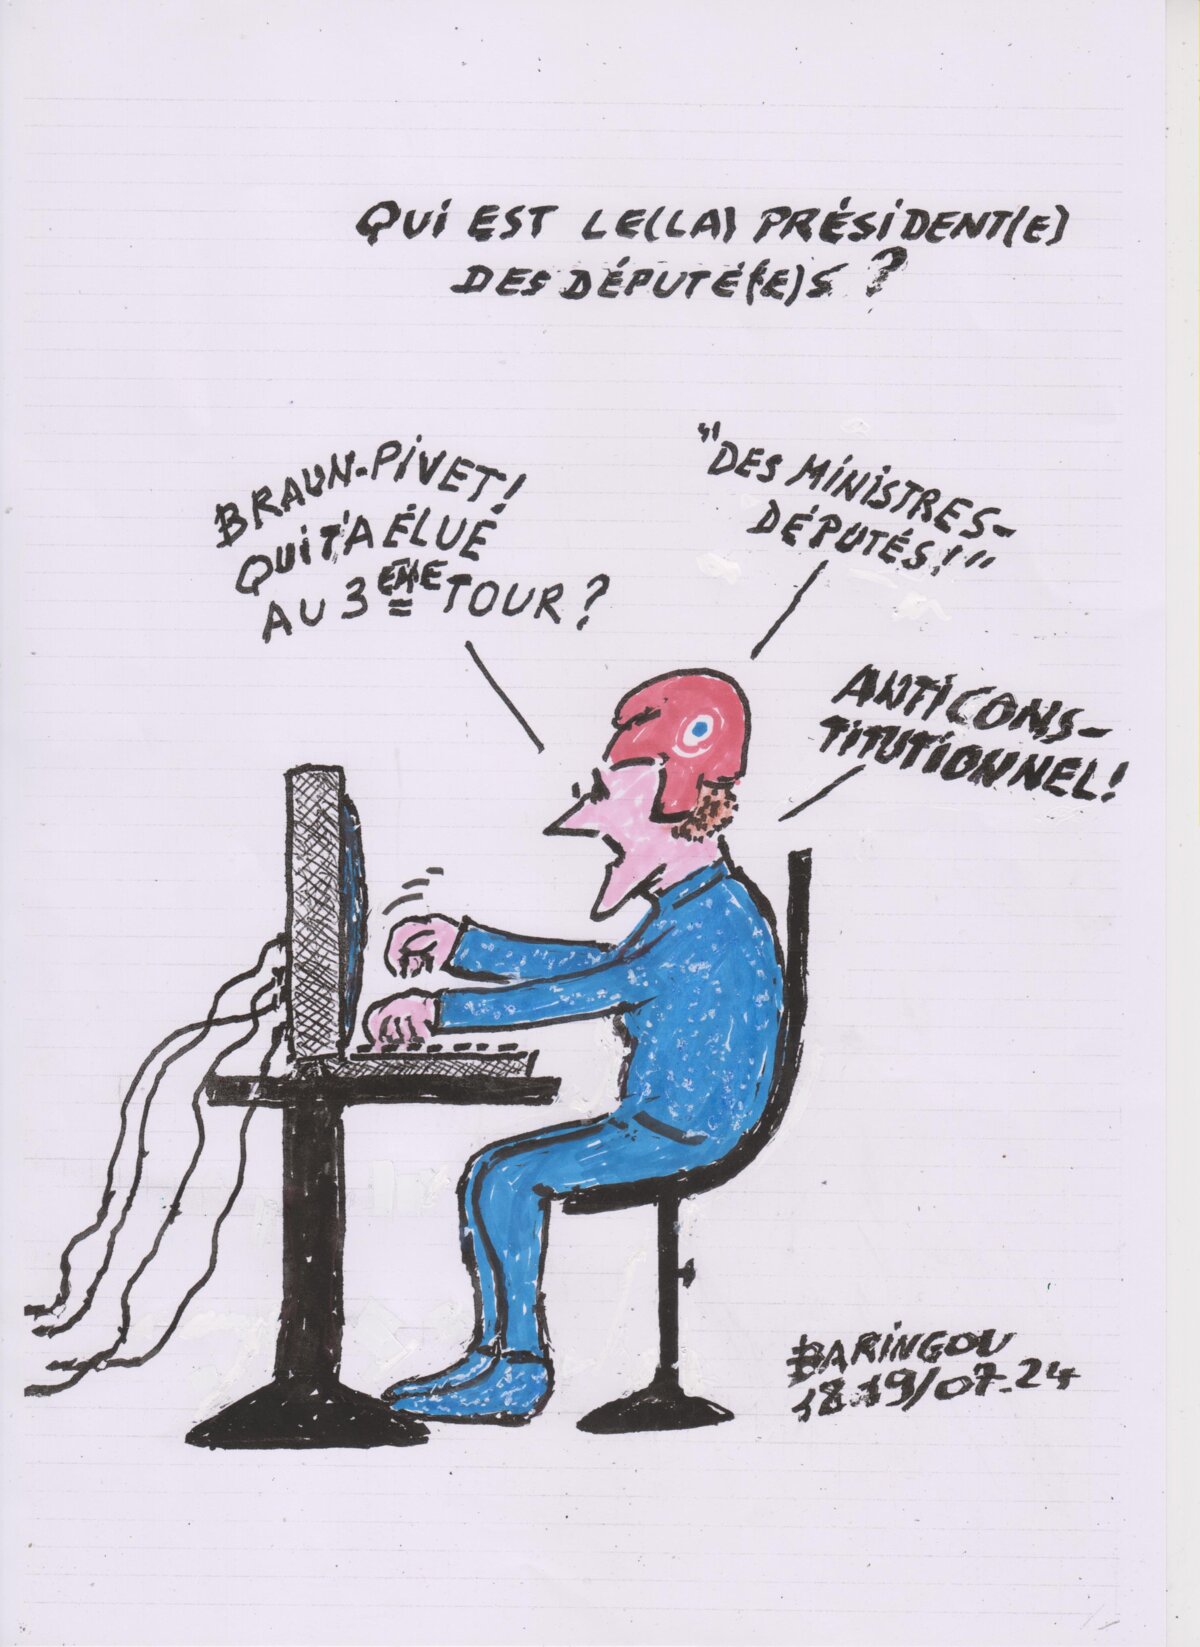 QUI EST LE(LA) PRÉSIDENT(E)
DES DÉPUTÉ(E)S ?
BRAUN-PIVET!
QUI T'A ÉLUÉ
AU 3ÈME TOUR ?
"DES MINISTRES-
DÉPUTÉS!"
ANTICONS-
TITUTIONNEL!
BARINGOU
18.19/07.24